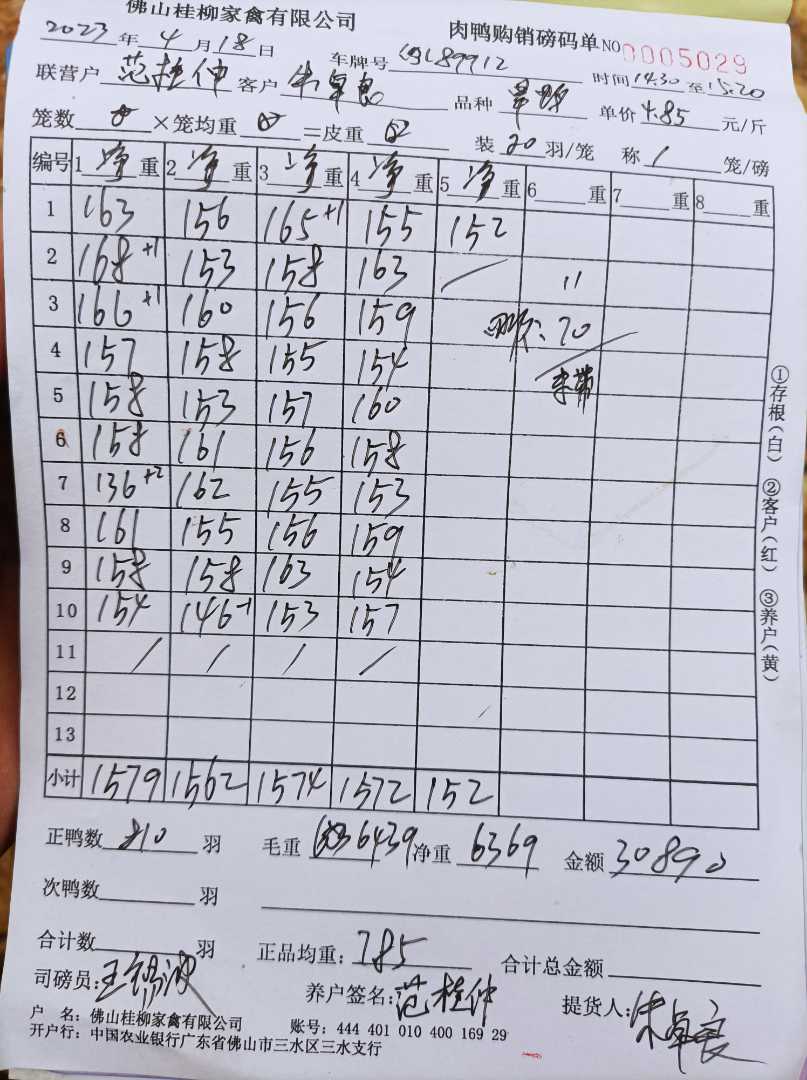 佛山桂柳家禽有限公司
肉鸭购销磅码单 NO 0005029
2023 年 4 月 18 日 车牌号 89912 时间 14.30 至 15.20
联营户 范桂仲 客户 朱卓良 品种 单价 4.85 元/斤
笼数 × 笼均重 = 皮重 装 20 羽/笼 称 1 笼/磅
编号 1 净 重 2 净 重 3 净 重 4 净 重 5 净 重 6 重 7 重 8 重
1 163 156 165+1 155 152
2 168+1 153 158 163 / 11
3 166+1 160 156 159 70
4 157 158 155 154
5 158 153 157 160
6 158 161 156 158
7 136+2 162 155 153
8 161 155 156 159
9 158 158 163 154
10 154 146-1 153 157
11 / / / /
12
13
小计 1579 1562 1574 1572 152
正鸭数 810 羽 毛重 6439 净重 6369 金额 30890
次鸭数 羽
合计数 羽 正品均重: 785 合计总金额
司磅员: 王锡波 养户签名: 范桂仲 提货人: 朱卓良
户 名: 佛山桂柳家禽有限公司 账号: 444 401 010 400 169 29
开户行: 中国农业银行广东省佛山市三水区三水支行
①存根(白) ②客户(红) ③养户(黄)